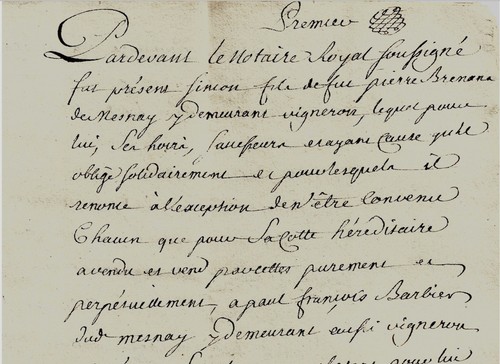 Premier
Pardevant le Notaire Royal soussigné
fut présent simon fils de fut pierre Brenans
de Mesnay y demeurant vigneron, lequel pour
lui, ses hoirs, successeurs et ayant cause qu'il
oblige solidairement et pour lesquels il
renonce à l'exception de n'être Convenu
Chacun que pour sa Cotte héréditaire
a vendu et vend par cettes purement et
perpétuellement, a paul françois Barbier
dud mesnay y demeurant aussi vigneron
pour lui